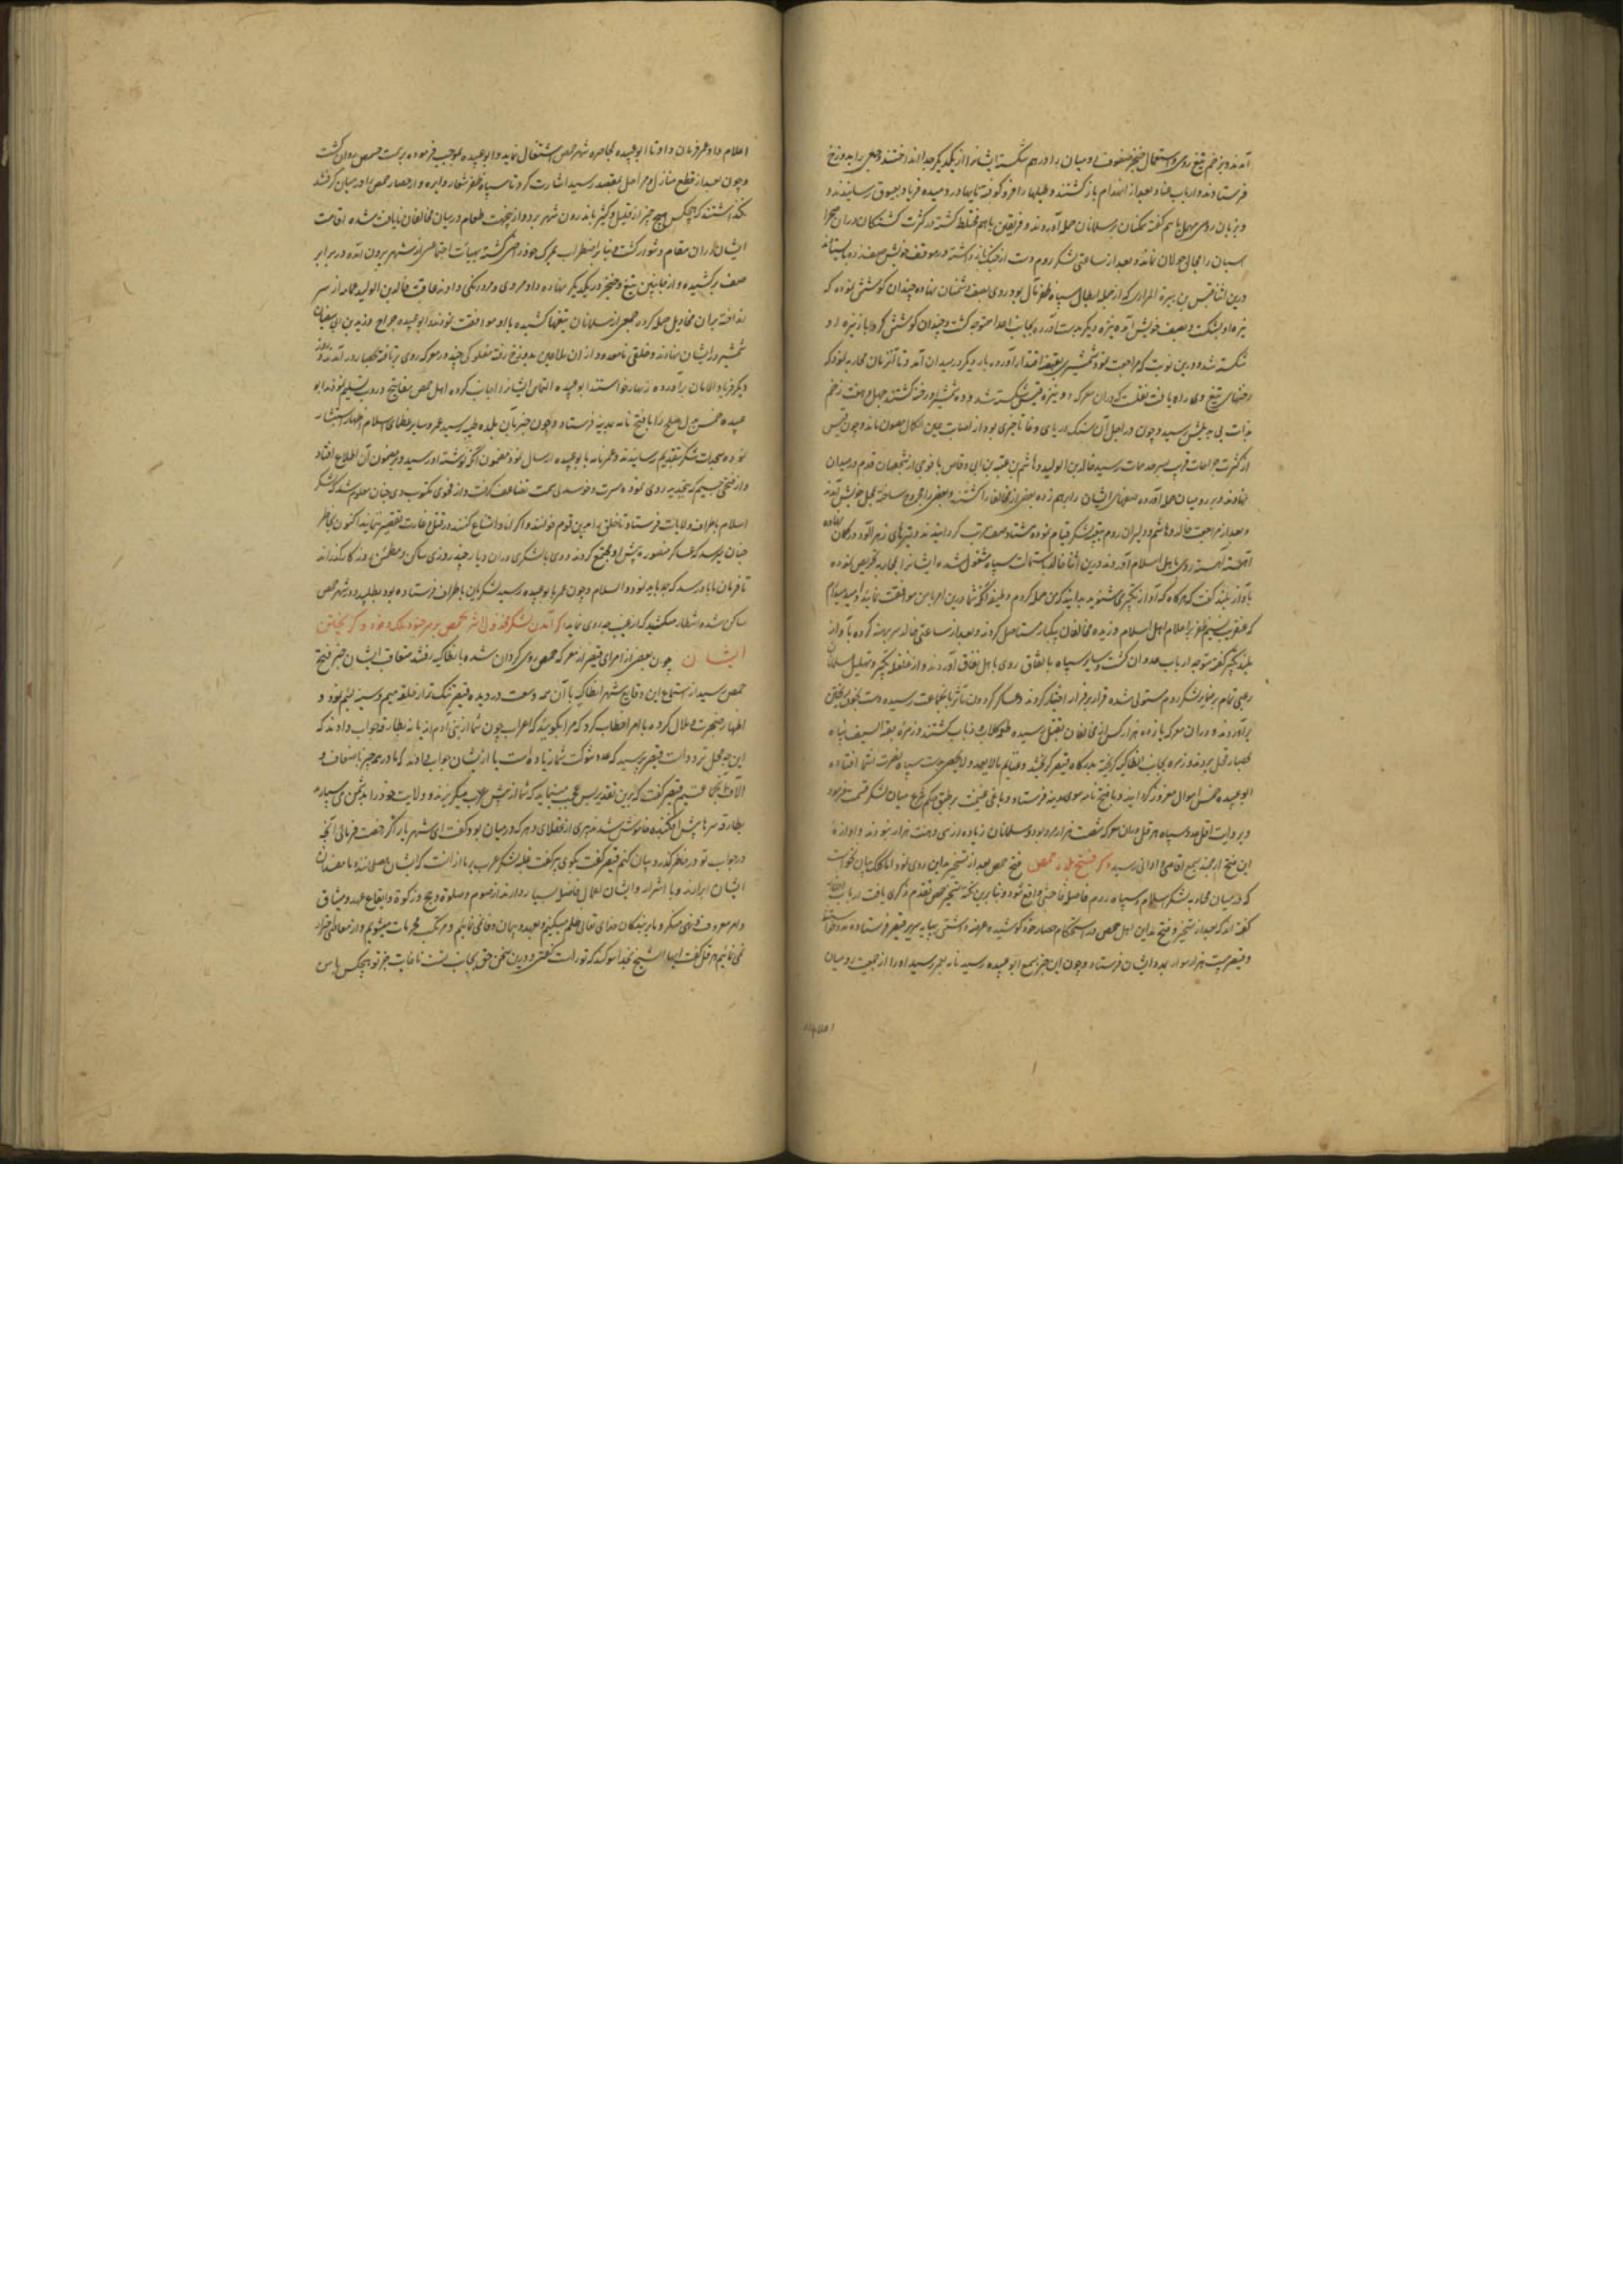 آمدند و بزخم تیغ روی و استعمال خنجر صفوف رومیان را درهم شکسته ایشانرا از یکدیگر جدا انداختند و جمعی را بدوزخ
فرستادند و ارباب عناد بعد از انهزام بازگشتند و طبلها را فرو کوفته نایها در دمیده فریاد بعیوق رسانیدند و
و بزبان رومی سهل باهم گفته تمکنان بر مسلمانان حمله آوردند و فریقین باهم مختلط گشته از کثرت کشتگان در ان صحرا
اسبان را مجال جولان نماند و بعد از ساعتی لشکر روم دست از جنگ باز داشته در موقف خویش صف زده بایستادند
درین اثنا قیس بن هبیرة المرادی که از جمله ابطال سپاه ظفر مآل بود روی بصف دشمنان نهاده چندان کوشش نمود که
نیزه او بشکست و بصف خویش آمده نیزه دیگر بدست آورده بجانب اعدا متوجه گشت و چندان کوشش کرد که باز نیزه او
شکسته شد و درین نوبت که مراجعت نمود شمشیری بقبضه اقتدار آورده بار دیگر در میدان آمد و تا آنزمان محاربه نمود که
رخنهای تیغ وی راه یافت نقلست که در ان معرکه دو نیزه قیس شکسته شد و ده شمشیر او رخنه گشتند چهل و هفت زخم
بذات بی‌ عیبش رسید و چون در اصل آن سنگ دریای وغا تاخیری بود از اصابت عین الکمال مصون ماند و چون قیس
از کثرت جراحات قریب بسرحد ممات رسید خالد بن الولید و هاشم بن عتبه بن ابی وقاص با فوجی از شجعان قدم در میدان
نهادند و بر رومیان حمله آورده صفهای ایشان را برهم زده بعضی از مخالفان را کشتند و بعضی را مجروح ساخته بمحل خویش آمدند
و بعد از مراجعت خالد و هاشم دلیران روم بتعبیه لشکر قیام نموده هشتاد صف مرتب گردانیدند و تیرهای زهرآلود در کمان نهاده
آهسته آهسته روی باهل اسلام آوردند درین اثنا خالد باستمالت سپاه مشغول شده ایشانرا بمحاربه تحریص نموده
بآواز بلند گفت که هرگاه که آواز تکبیری شنوید بدانید که من حمله کردم وظیفه آنکه شما درین امر با من موافقت نمایید امید میدارم
که عنقریب نسیم ظفر بر اعلام اهل اسلام وزیده مخالفان یکبار مستاصل گردند و بعد از ساعتی خالد سر برهنه کرده بآواز
بلند تکبیر گفته متوجه ارباب عدوان گشت و سایر سپاه باتفاق روی باهل نفاق آوردند و از غلغله تکبیر و تهلیل مسلمانان
رعبی تمام بر ضمایر لشکر روم مستولی شده قرار بر فرار اختیار کردند و عساکر گردون مآثر بانجماعت رسیده دست بخون ریختن
برآوردند و در ان معرکه پانزده هزار کس از مخالفان بقتل رسیده طعمه کلاب و ذیاب گشتند و زمره بقیة السیف پناه
بحصار فحل بردند و زمره بجانب انطاکیه گریخته بدرگاه قیصر گریختند و غنایم بالایعد و لایحصی بدست سپاه نصرت انتما افتاده
ابوعبیده خمس اموال مفروز گردانید و با فتح نامه سوی مدینه فرستاد و باقی غنیمت بر طبق حکم شرع میان لشکر قسمت فرمود
و بروایت اقل عدد سپاه هرقل در ان معرکه شصت هزار مرد بود و مسلمانان زیاده از سی و هفت هزار نبودند و آوازه
این فتح ارجمند بسمع اقاصی و ادانی رسید ذکر فتح بلده حمص فتح حمص بعد از تسخیر مداین روی نمود اما کلک بیان نخواست
که در میان محاربه لشکر اسلام و سپاه روم فاصلۀ فاحش واقع شود و بنابرین نکته تسخیر حمص تقدم ذکری یافت ارباب اخبار
گفته اند که بعد از تسخیر و فتح مداین اهل حمص در استحکام حصار خود کوشیده عرضه داشتی بپایه سریر قیصر فرستاده مدد طلبیدند
و قیصر بیست هزار سوار بمدد ایشان فرستاد و چون این خبر بسمع ابوعبیده رسید نامه بعمر رسید او را از جمعیت رومیان
اعلام داد عمر فرمان داد تا ابوعبیده بمحاصره شهر حمص اشتغال نماید و ابوعبیده بموجب فرموده بسمت حمص روان گشت
و چون بعد از قطع منازل و مراحل بمقصد رسید اشارت کرد تا سپاه ظفر شعار دایره وار حصار حمص را در میان گرفتند
نگذاشتند که هیچکس هیچ چیز از قلیل و کثیر باندرون شهر برد و ازینجهت طعام در میان مخالفان نایافت شده اقامت
ایشان در ان مقام دشوار گشت و بنابر اضطراب بمرگ خود راضی گشته بهیأت اجتماعی از شهر بیرون آمده در برابر
صف برکشیده و از جانبین تیغ و خنجر در یکدیگر نهاده داد مردی و مردانگی دادند عاقبت خالد بن الولید عمامه از سر
انداخته بران مخاذیل حمله کرد و جمعی از مسلمانان تیغها کشیده با او موافقت نمودند و ابوعبیده جراح و یزید بن ابی سفیان
شمشیر در ایشان نهادند و خلقی نامعدود از ان ملاعین بدوزخ رفته مفلوکی چند در معرکه روی برتافته بحصار درآمدند و روز
دیگر فریاد الامان برآورده زنهار خواستند ابوعبیده التماس ایشانرا اجابت کرده اهل حمص مفاتیح دروب تسلیم نمودند ابو
عبیده خمس مال صلح را با فتح نامه بمدینه فرستاد و چون خبر آن بلده طیبه رسید عمر و سایر عظمای اسلام اظهار استبشار
نموده سجدات شکر بتقدیم رسانیدند و عمر نامه بابوعبیده ارسال نمود مضمون آنکه نوشته او رسید و بر مضمون آن اطلاع افتاد
و از فتحی جسیم که بتجدید روی نموده مسرت و خرسندی سمت تضاعف گرفت و از فحوی مکتوب وی چنان معلوم شد که لشکر
اسلام باطراف ولایات فرستاد تا خلق را بدین قویم خوانند و اگر ابا و امتناع کنند در قتل و غارت تقصیر ننمایند اکنون بخاطر
چنان میرسد که عساکر منصوره پیش او مجتمع گردند و وی با لشکری در ان دیار چند روزی ساکن و مطمئن روزگار گذراند
تا فرمان ما باو رسد که چه باید نمود و السلام و چون عمر بابوعبیده رسید لشکریان باطراف فرستاده بود بطلبید و در شهر حمص
ساکن شده انتظار میکشید که از غیب چه روی نماید ذکر آمدن لشکر
ایشان چون بعضی از امرای قیصر از معرکه حمص روی گردان شده بانطاکیه رفتند متعاقب ایشان خبر فتح
حمص رسید از استماع این وقایع شهر انطاکیه با آن همه وسعت در دیده قیصر تنگ تر از حلقه میم و سینه لئیم نمود و
اظهار ضجرت و ملال کرده با امرا خطاب کرد که مرا بگویید که اعراب چون شما از بنی آدم اند یا نه بطارقه جواب دادند که
این چه محل تردد است قیصر پرسید که عدد شوکت شما زیاده است یا ازیشان جواب دادند که ما در همه چیز باضعاف و
آلاف بر آنجماعتیم قیصر گفت که برین تقدیر بس عجب مینماید که شما از پیش عرب میگریزید و ولایت خود را بدشمن می سپارید
بطارقه سرها پیش افکنده خاموش شدند پیری از عقلای دهر که در میان بود گفت ای شهریار اگر رخصت فرمائی آنچه
در جواب تو در خاطر گذرد بیان کنم قیصر گفت بگوی پیر گفت غلبه لشکر عرب بر ما از انست که ایشان مصلحانند و ما مفسدان
ایشان ابرارند و ما اشرار و ایشان اعمال فاضله بسیار دارند از صوم و صلوة و حج و زکوة و ایفاء عهد و میثاق
و امر معروف و نهی منکر و ما بر بندگان خدای تعالی ظلم میکنیم و بعهد و پیمان وفا نمی نمائیم و مرتکب محرمات میشویم و از معاصی احتراز
نمی نمائیم هرقل گفت ایها الشیخ بخدا سوگند که تو راست گفتی و درین سخن حق بجانب تست تا غایت بجز تو هیچکس با من